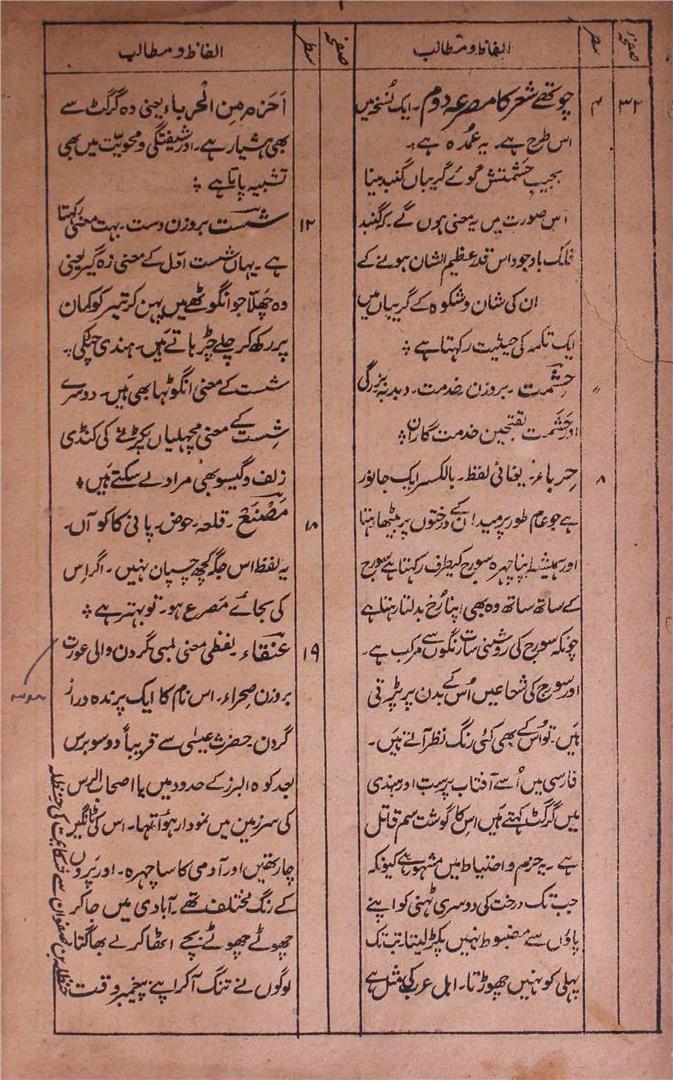 صفحہ سطر الفاظ و مطالب
۳۲ ۴ چوتھے شعر کا مصرعہ دوم۔ ایک نسخہ میں
اس طرح ہے۔ یہ عمدہ ہے :۔
بجیبِ حَشمتش گوئے گریباں گنبد مینا
اس صورت میں یہ معنی ہوں گے۔ کہ گنبد
فلک باوجود اس قدر عظیم الشان ہونے کے
ان کی شان و شکوہ کے گریباں میں
ایک تکمہ کی حیثیت رکہتا ہے ؞
〃 حِشمت۔ بروزن خدمت۔ دبدبہ بزرگی
اور حَشَمت بفتحین خدمت گاران ؞
۸ حِرباء۔ یونانی لفظ۔ بالکسر ایک جانور
ہے جو عام طور پر میدان کے درختوں پر بیٹھا رہتا
اور ہمیشہ اپنا چہرہ سورج کیطرف رکہتا ہے سورج
کے ساتھ ساتھ وہ بھی اپنا رُخ بدلتا رہتا ہے
چونکہ سورج کی روشنی سات رنگوں سے مرکب ہے۔
اور سورج کی شعاعیں اُس کے بدن پر پڑتی
ہیں۔ تو اُس کے بھی کئی رنگ نظر آتے ہیں۔
فارسی میں اُسے آفتاب پرست اور ہندی
میں گرگٹ کہتے ہیں اس کا گوشت سم قاتل
ہے۔ یہ حزم و احتیاط میں مشہور ہے کیونکہ
جب تک درخت کی دوسری ٹہنی کو اپنے
پاؤں سے مضبوط نہیں پکڑ لیتا۔ تب تک
پہلی کو نہیں چھوڑتا۔ اہل عرب کی مثل ہے
صفحہ سطر الفاظ و مطالب
اَحزَم مِن الْحِرباء یعنی وہ گرگٹ سے
بھی ہشیار ہے۔ اور شیفتگی و محویّت میں بھی
تشبیہ پاتا ہے ؞
۱۲ شست بروزن دست۔ بہت معنی رکہتا
ہے۔ یہاں شست اوّل کے معنی زہ گیر یعنی
وہ چھلّا جو انگوٹھے میں پہن کر تیر کو کمان
پر رکھ کر چلے چڑہاتے ہیں۔ ہندی چٹکی۔
شست کے معنی انگوٹہا بھی ہیں۔ دوسرے
شِست کے معنی مچھلیاں پکڑنے کی کنڈی
زلف و گیسو بھی مراد لے سکتے ہیں ؞
۱۸ مَصْنَع۔ قلعہ۔ حوض۔ پانی کا کوآں۔
یہ لفظ اس جگہ کچھ چسپان نہیں۔ اگر اس
کی بجائے مَصرع ہو۔ تو بہتر ہے ؞
۱۹ عنقاء۔ لفظی معنی لمبی گردن والی عورت
بروزن صحراء۔ اس نام کا ایک پرندہ دراز
گردن۔ حضرت عیسٰی سے قریباً دو سو برس
بعد کوہ البرز کے حدود میں یا اصحاب الرس
کی سرزمین میں نمودار ہوأ تہا۔ اس کی ٹانگیں
چار تھیں اور آدمی کا سا چہرہ۔ اور پَروں
کے رنگ مختلف تھے۔ آبادی میں جا کر
چھوٹے چھوٹے بچے اٹھا کر لے بھاگتا۔
لوگوں نے تنگ آ کر اپنے پیغمبر وقت
حنظلہ بن صفوان سے شکایت کی حنظلہ